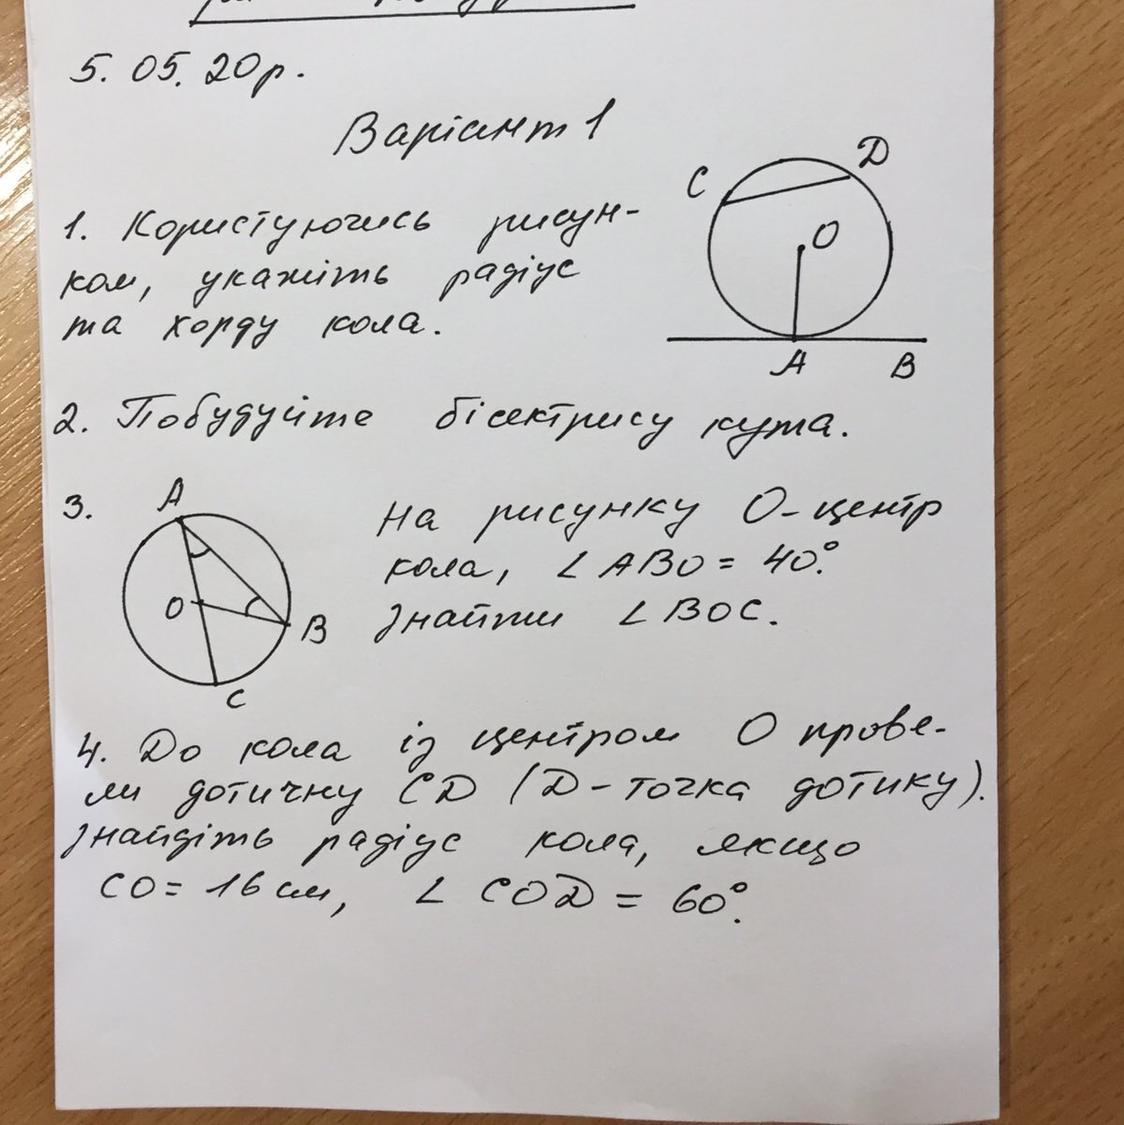 5. 05. 20р.
Варіант 1
1. Користуючись рисун-
ком, укажіть радіус
та хорду кола.
C
D
O
A
B
2. Побудуйте бісектрису кута.
3.
A
O
B
C
На рисунку О-центр
кола, ∠ABO = 40°.
Знайти ∠BOC.
4. До кола із центром О прове-
ли дотичну CD (D-точка дотику).
Знайдіть радіус кола, якщо
CO= 16 см, ∠ COD = 60°.